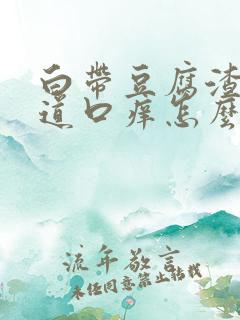 白带豆腐渣
道口痒怎么
流年敬言
未经同意禁止转载